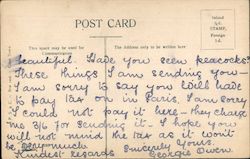 POST CARD
Inland
½d.
STAMP,
Foreign
1d.
This space may be used for
Communication.
The Address only to be written here
Beautiful. Have you seen peacocks?
These things I am sending you
I am sorry to say you will have
to pay tax on in Paris. I am sorry
I could not pay it here. they charge
me 3/6 for sending it. I hope you
will not mind the tax as it won't
be very much.
Kindest regards Sincerely Yours,
Georgie Owen